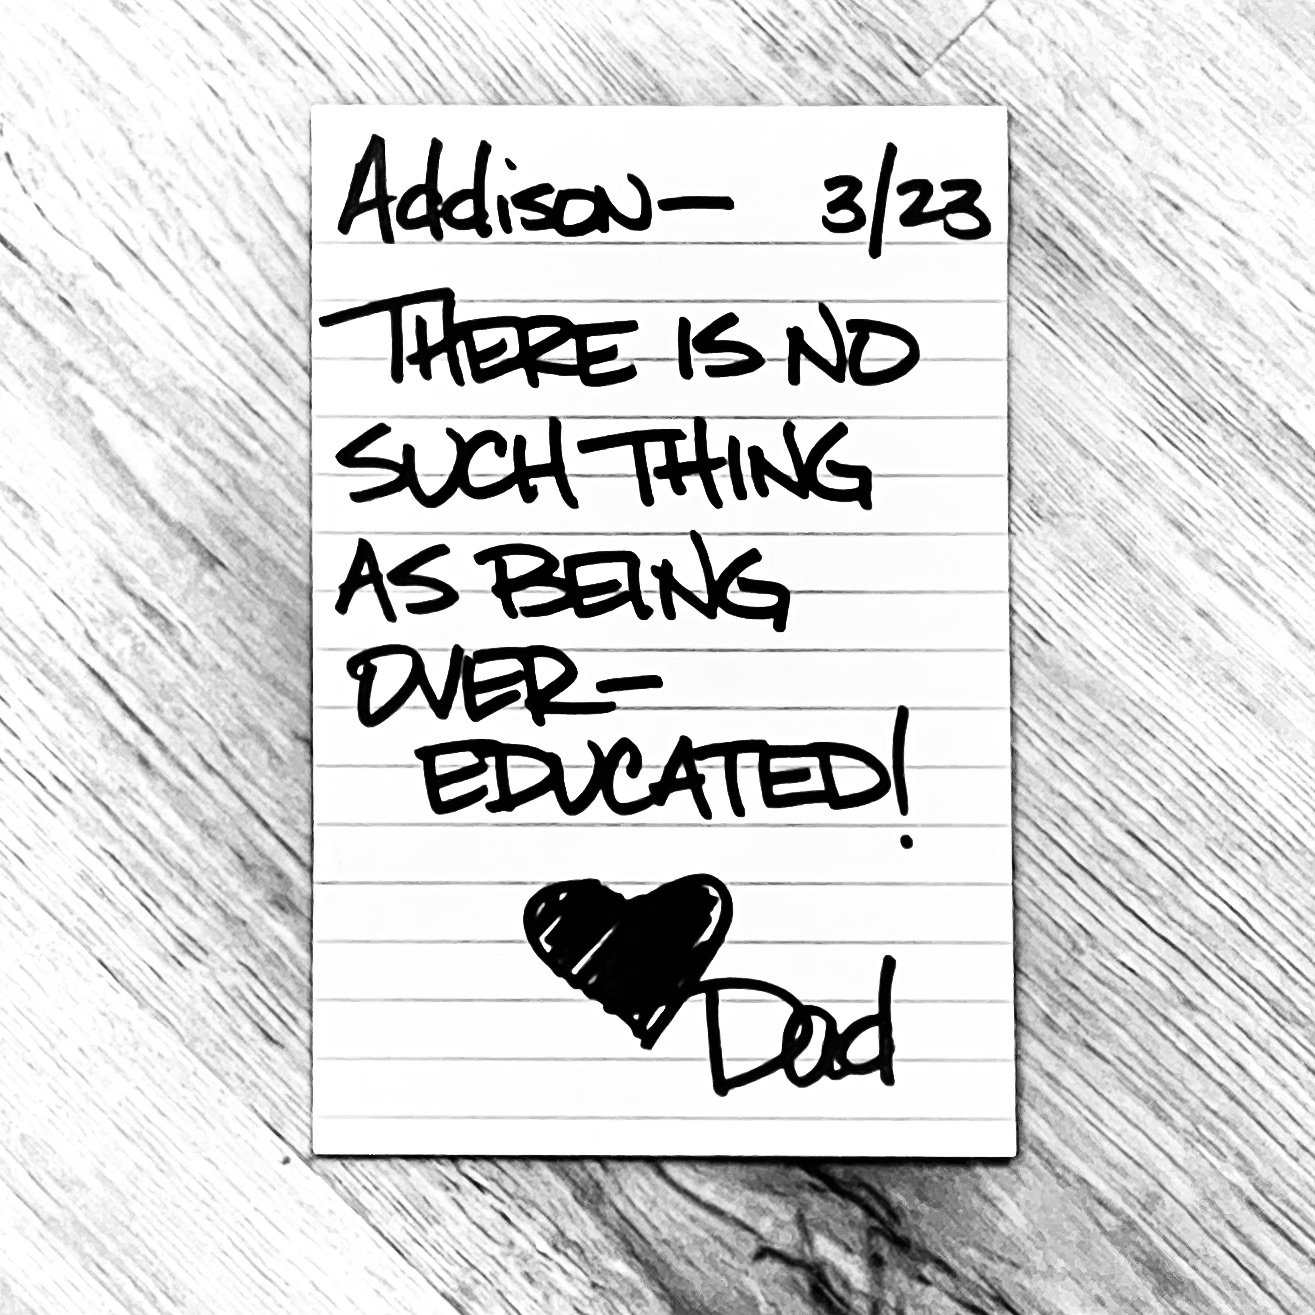 Addison— 3/23
THERE IS NO
SUCH THING
AS BEING
OVER-
EDUCATED!
Dad